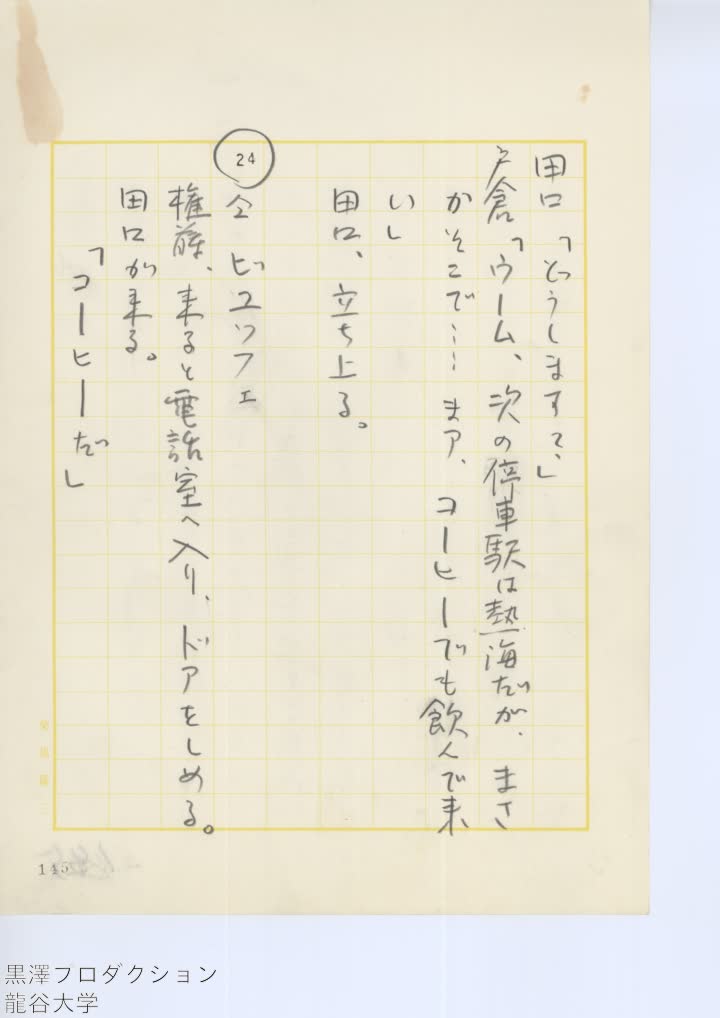 田口「どうします?」
戸倉「ウーム、次の停車駅は熱海だが、まさ
かそこで……まア、コーヒーでも飲んで来
い」
田口、立ち上る。
24
仝 ビユッフェ
権藤、来ると電話室へ入り、ドアをしめる。
田口が来る。
「コーヒーだ」
145
黒澤プロダクション
龍谷大学